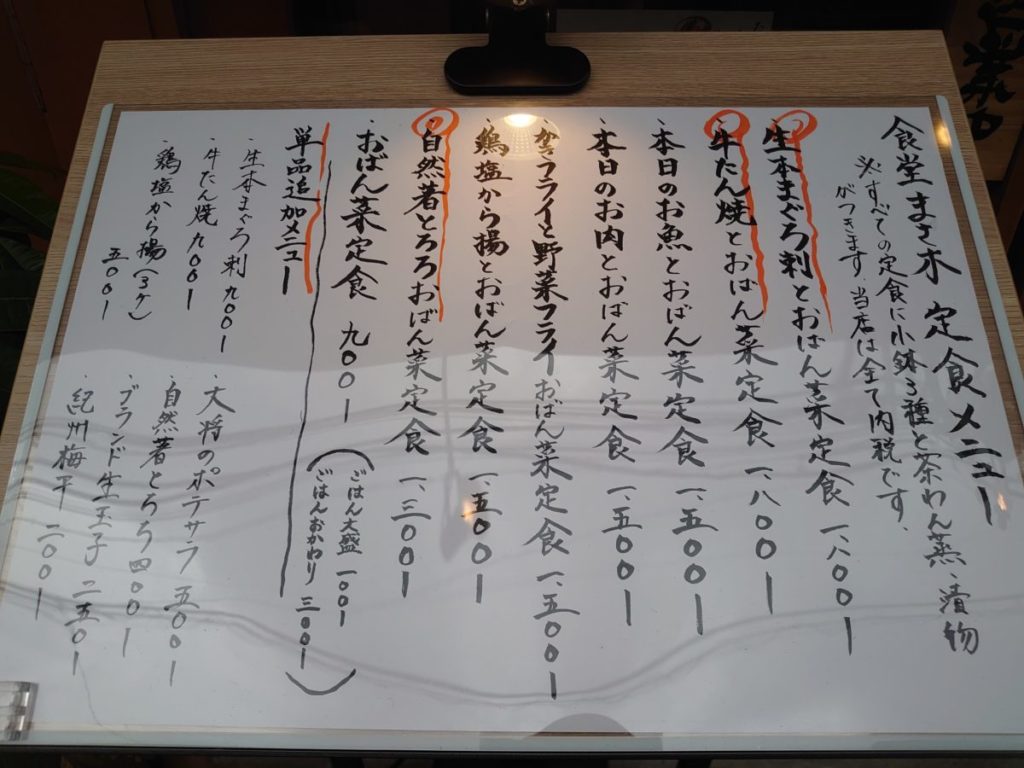 食堂まさ木 定食メニュー
※すべての定食に小鉢3種と茶わん蒸、漬物
がつきます 当店は全て内税です.
・生本まぐろ刺とおばん菜定食 一、八〇〇ー
・牛たん焼とおばん菜定食 一、八〇〇ー
・本日のお魚とおばん菜定食 一、五〇〇ー
・本日のお肉とおばん菜定食 一、五〇〇ー
フライと野菜フライおばん菜定食 一、五〇〇ー
・鶏塩から揚とおばん菜定食 一、五〇〇ー
・自然薯とろろおばん菜定食 一、三〇〇ー
おばん菜定食 九〇〇ー
(ごはん大盛 一〇〇ー
ごはんおかわり 三〇〇ー)
単品追加メニュー
・生本まぐろ刺 九〇〇ー
・牛たん焼 九〇〇ー
・鶏塩から揚(3ケ)
五〇〇ー
・大将のポテサラ 五〇〇ー
・自然薯とろろ 四〇〇ー
・ブランド生玉子 二五〇ー
・紀州梅干 二〇〇ー